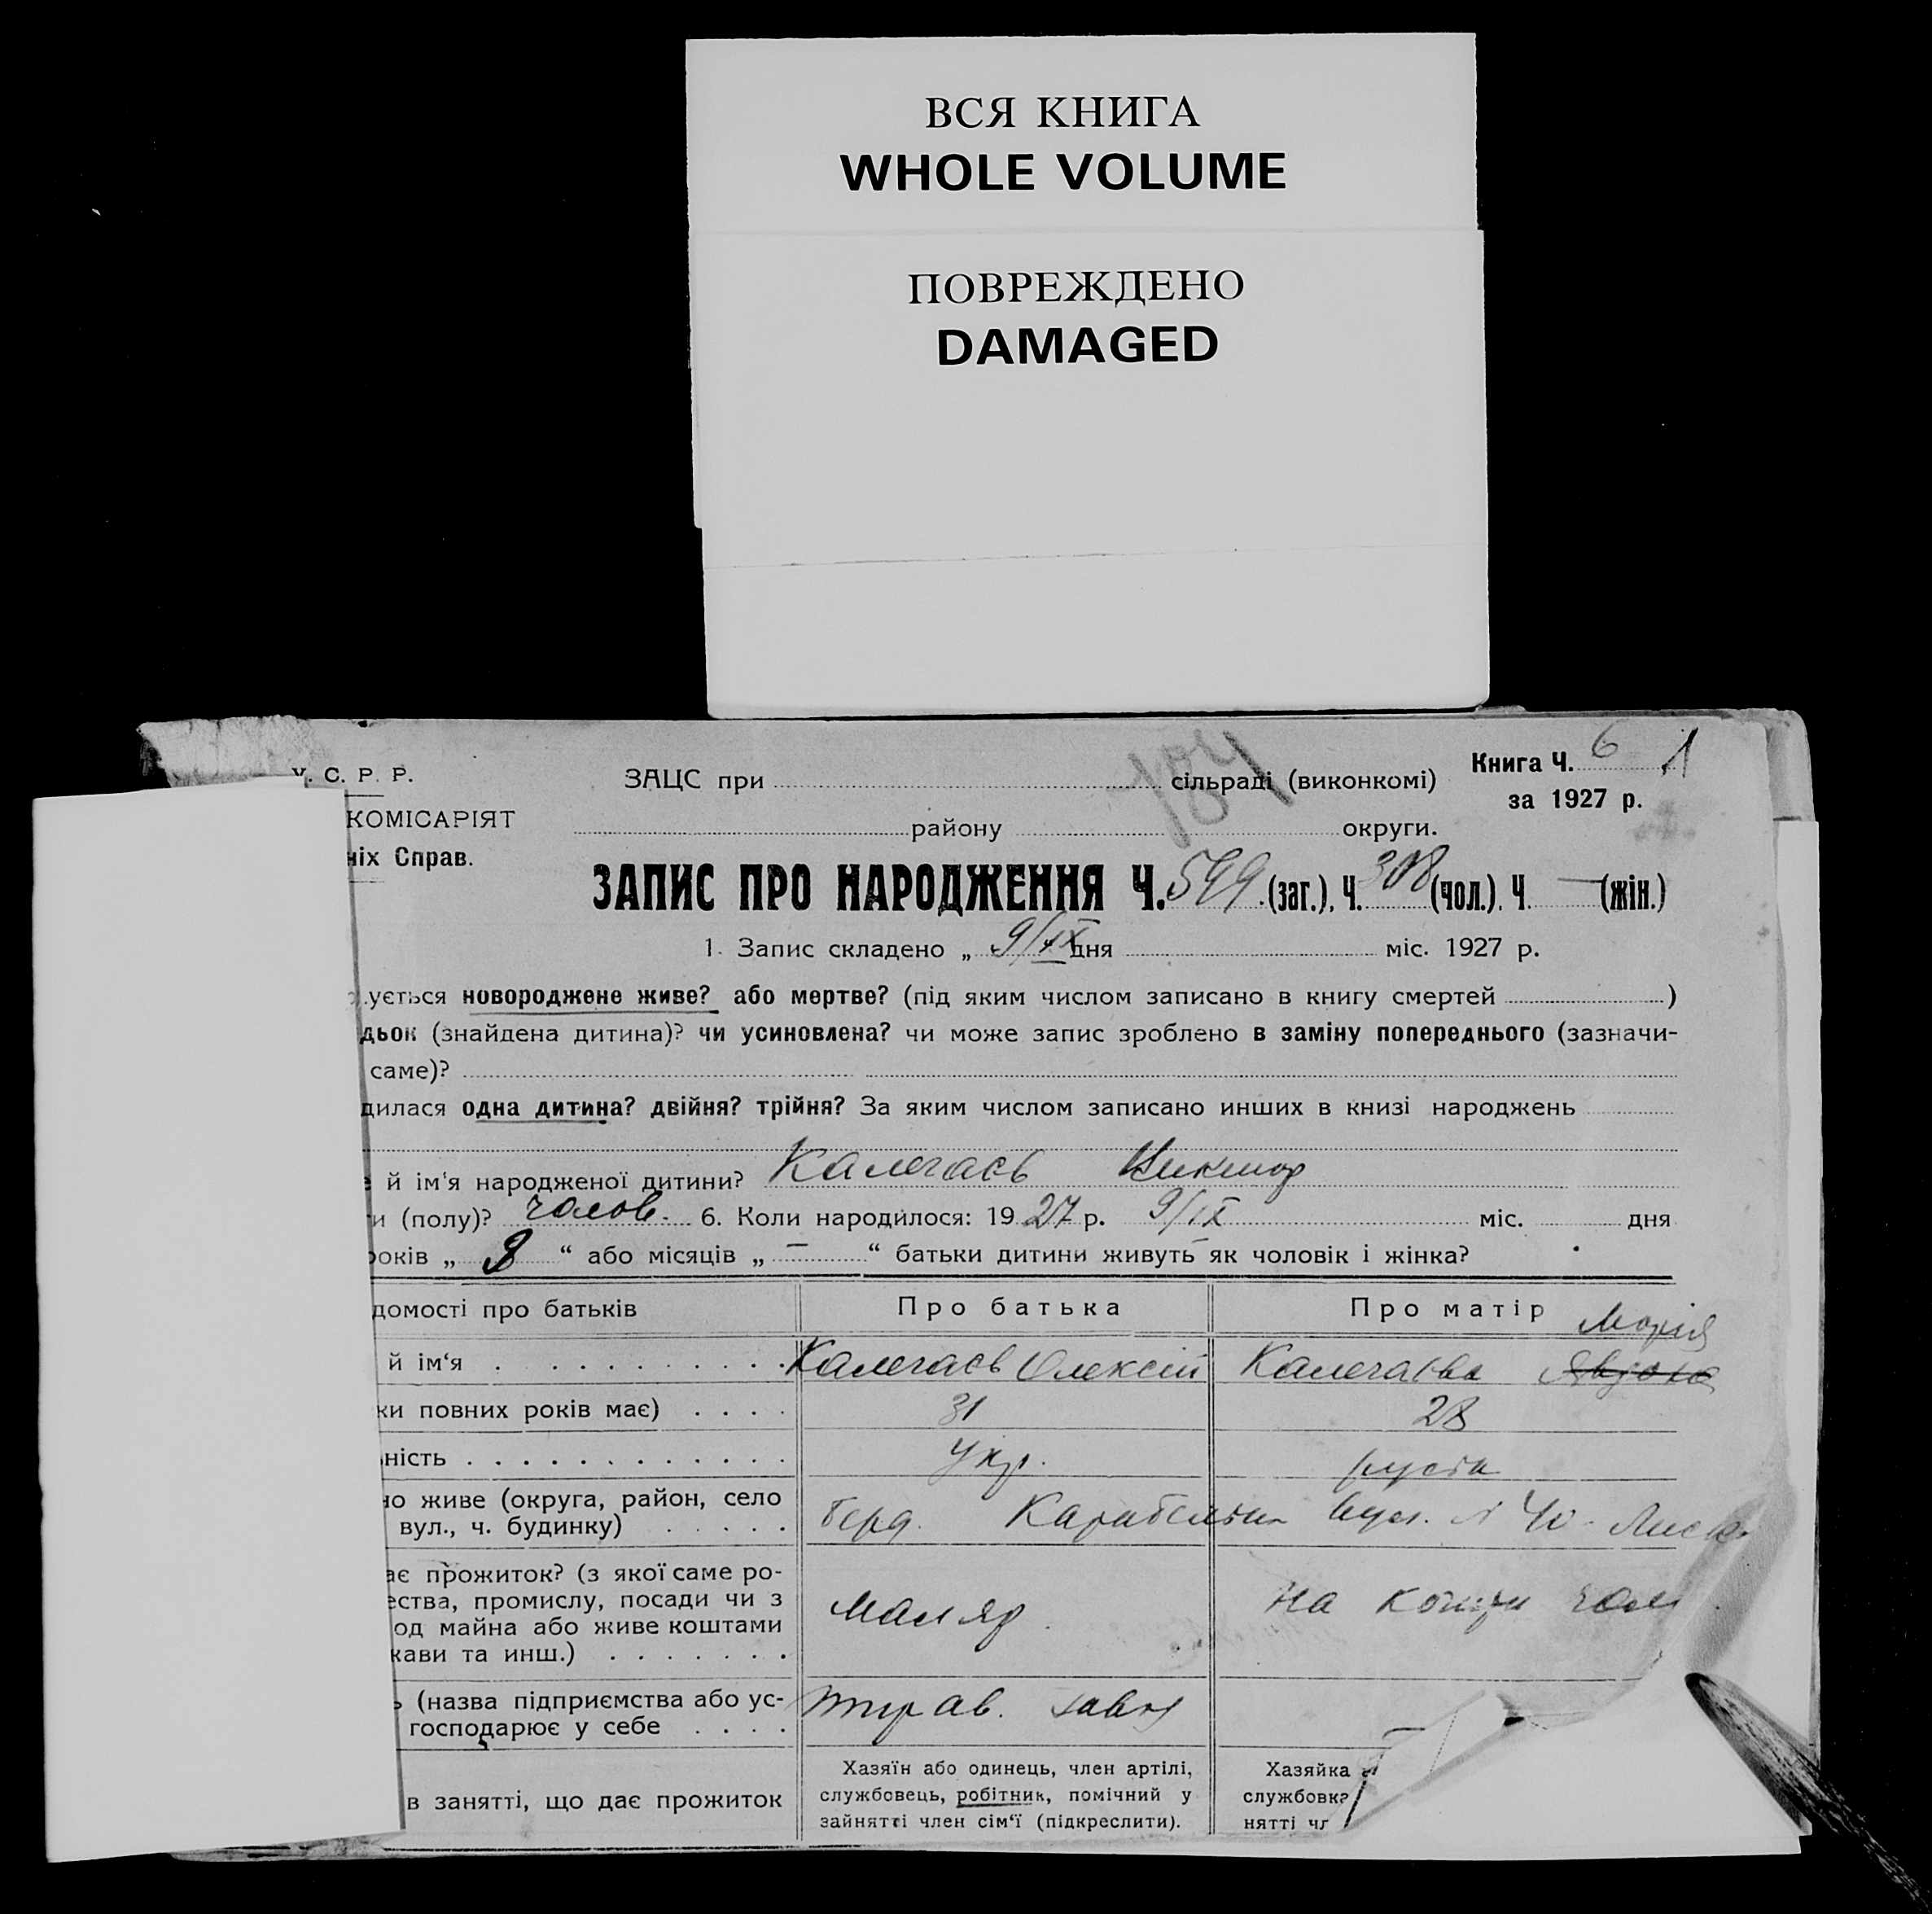 ВСЯ КНИГА
WHOLE VOLUME
ПОВРЕЖДЕНО
DAMAGED
У. С. Р. Р.
ЗАЦС при сільраді (виконкомі)
Книга Ч. 6 1
за 1927 р.
КОМІСАРІЯТ
району округи.
ніх Справ.
ЗАПИС ПРО НАРОДЖЕННЯ Ч. 599 (заг.), Ч. 308 (чол.). Ч. — (жін.)
1. Запис складено „ 9/IX дня міс. 1927 р.
ується новороджене живе? або мертве? (під яким числом записано в книгу смертей )
дьок (знайдена дитина)? чи усиновлена? чи може запис зроблено в заміну попереднього (зазначи-
саме)?
дилася одна дитина? двійня? трійня? За яким числом записано инших в книзі народжень
й ім'я народженої дитини? Калегаєв Виктор
и (полу)? чолов. 6. Коли народилося: 1927 р. 9/IX міс. дня
років „ 8 “ або місяців „ — “ батьки дитини живуть як чоловік і жінка?
домості про батьків
Про батька
Про матір
Марія
й ім‘я
Калегаєв Олексій
Калегаєва
ки повних років має)
31
28
ність
Укр.
руська
о живе (округа, район, село
вул., ч. будинку)
Берд. вул. 40
ає прожиток? (з якої саме ро-
ества, промислу, посади чи з
од майна або живе коштами
жави та инш.)
Маляр
на кошти чол.
(назва підприємства або ус-
господарює у себе
завод
в занятті, що дає прожиток
Хазяїн або одинець, член артілі,
службовець, робітник, помічний у
зайнятті член сім‘ї (підкреслити).
Хазяйка
службовка
нятті чл